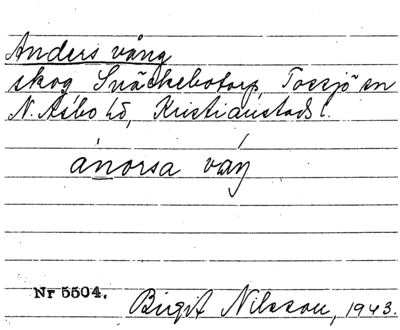 Anders vång
skog, Snäckebotorp, Tossjö sn
N. Åsbo hd, Kristianstads l.
ánorsa váŋ
Nr 5504.
Birgit Nilsson, 1943.